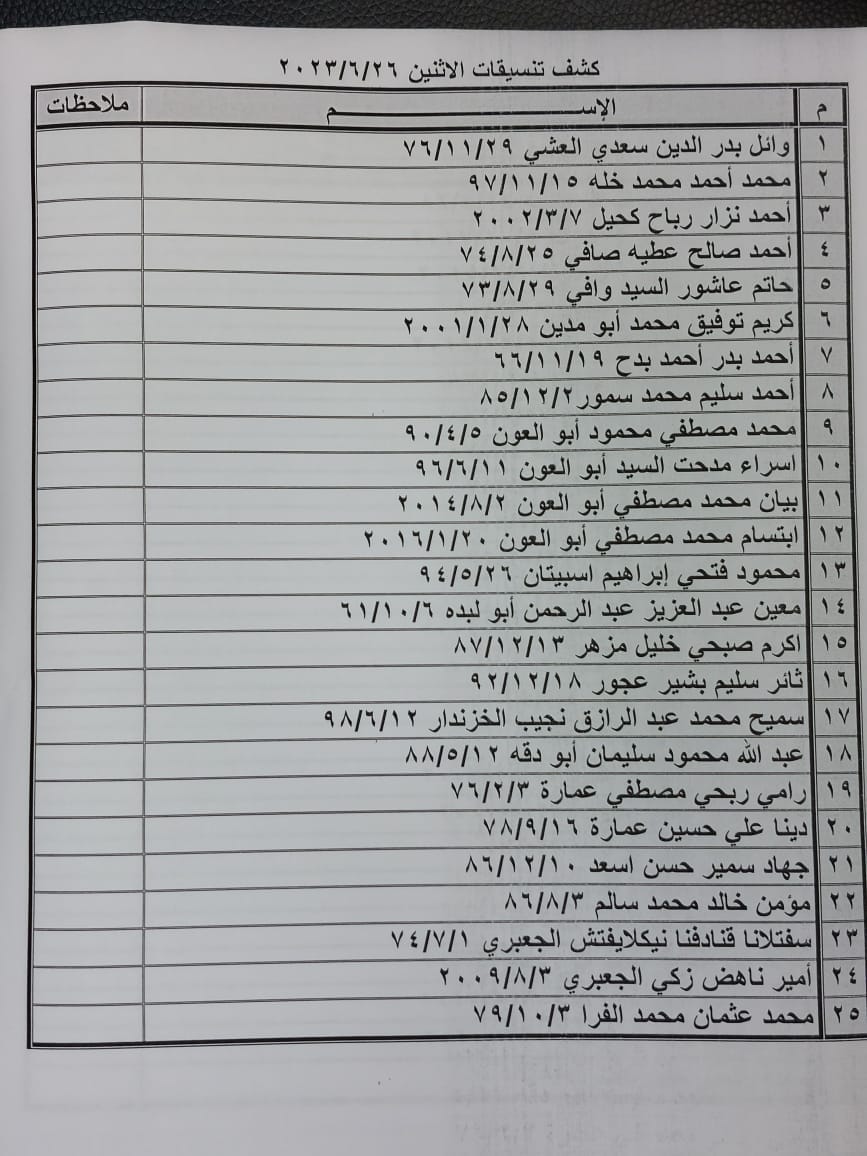 كشف تنسيقات الاثنين ٢٠٢٣/٦/٢٦
م الإســـــــــــــــــــــم ملاحظات
١ وائل بدر الدين سعدي العشي ٧٦/١١/٢٩
٢ محمد أحمد محمد خله ٩٧/١١/١٥
٣ أحمد نزار رباح كحيل ٢٠٠٢/٣/٧
٤ أحمد صالح عطيه صافي ٧٤/٨/٢٥
٥ حاتم عاشور السيد وافي ٧٣/٨/٢٩
٦ كريم توفيق محمد أبو مدين ٢٠٠١/١/٢٨
٧ أحمد بدر أحمد بدح ٦٦/١١/١٩
٨ أحمد سليم محمد سمور ٨٥/١٢/٢
٩ محمد مصطفي محمود أبو العون ٩٠/٤/٥
١٠ اسراء مدحت السيد أبو العون ٩٦/٦/١١
١١ بيان محمد مصطفي أبو العون ٢٠١٤/٨/٢
١٢ ابتسام محمد مصطفي أبو العون ٢٠١٦/١/٢٠
١٣ محمود فتحي إبراهيم اسبيتان ٩٤/٥/٢٦
١٤ معين عبد العزيز عبد الرحمن أبو لبده ٦١/١٠/٦
١٥ اكرم صبحي خليل مزهر ٨٧/١٢/١٣
١٦ ثائر سليم بشير عجور ٩٢/١٢/١٨
١٧ سميح محمد عبد الرازق نجيب الخزندار ٩٨/٦/١٢
١٨ عبد الله محمود سليمان أبو دقه ٨٨/٥/١٢
١٩ رامي ربحي مصطفي عمارة ٧٦/٢/٣
٢٠ دينا علي حسين عمارة ٧٨/٩/١٦
٢١ جهاد سمير حسن اسعد ٨٦/١٢/١٠
٢٢ مؤمن خالد محمد سالم ٨٦/٨/٣
٢٣ سفتلانا قنادفنا نيكلايفتش الجعبري ٧٤/٧/١
٢٤ أمير ناهض زكي الجعبري ٢٠٠٩/٨/٣
٢٥ محمد عثمان محمد الفرا ٧٩/١٠/٣